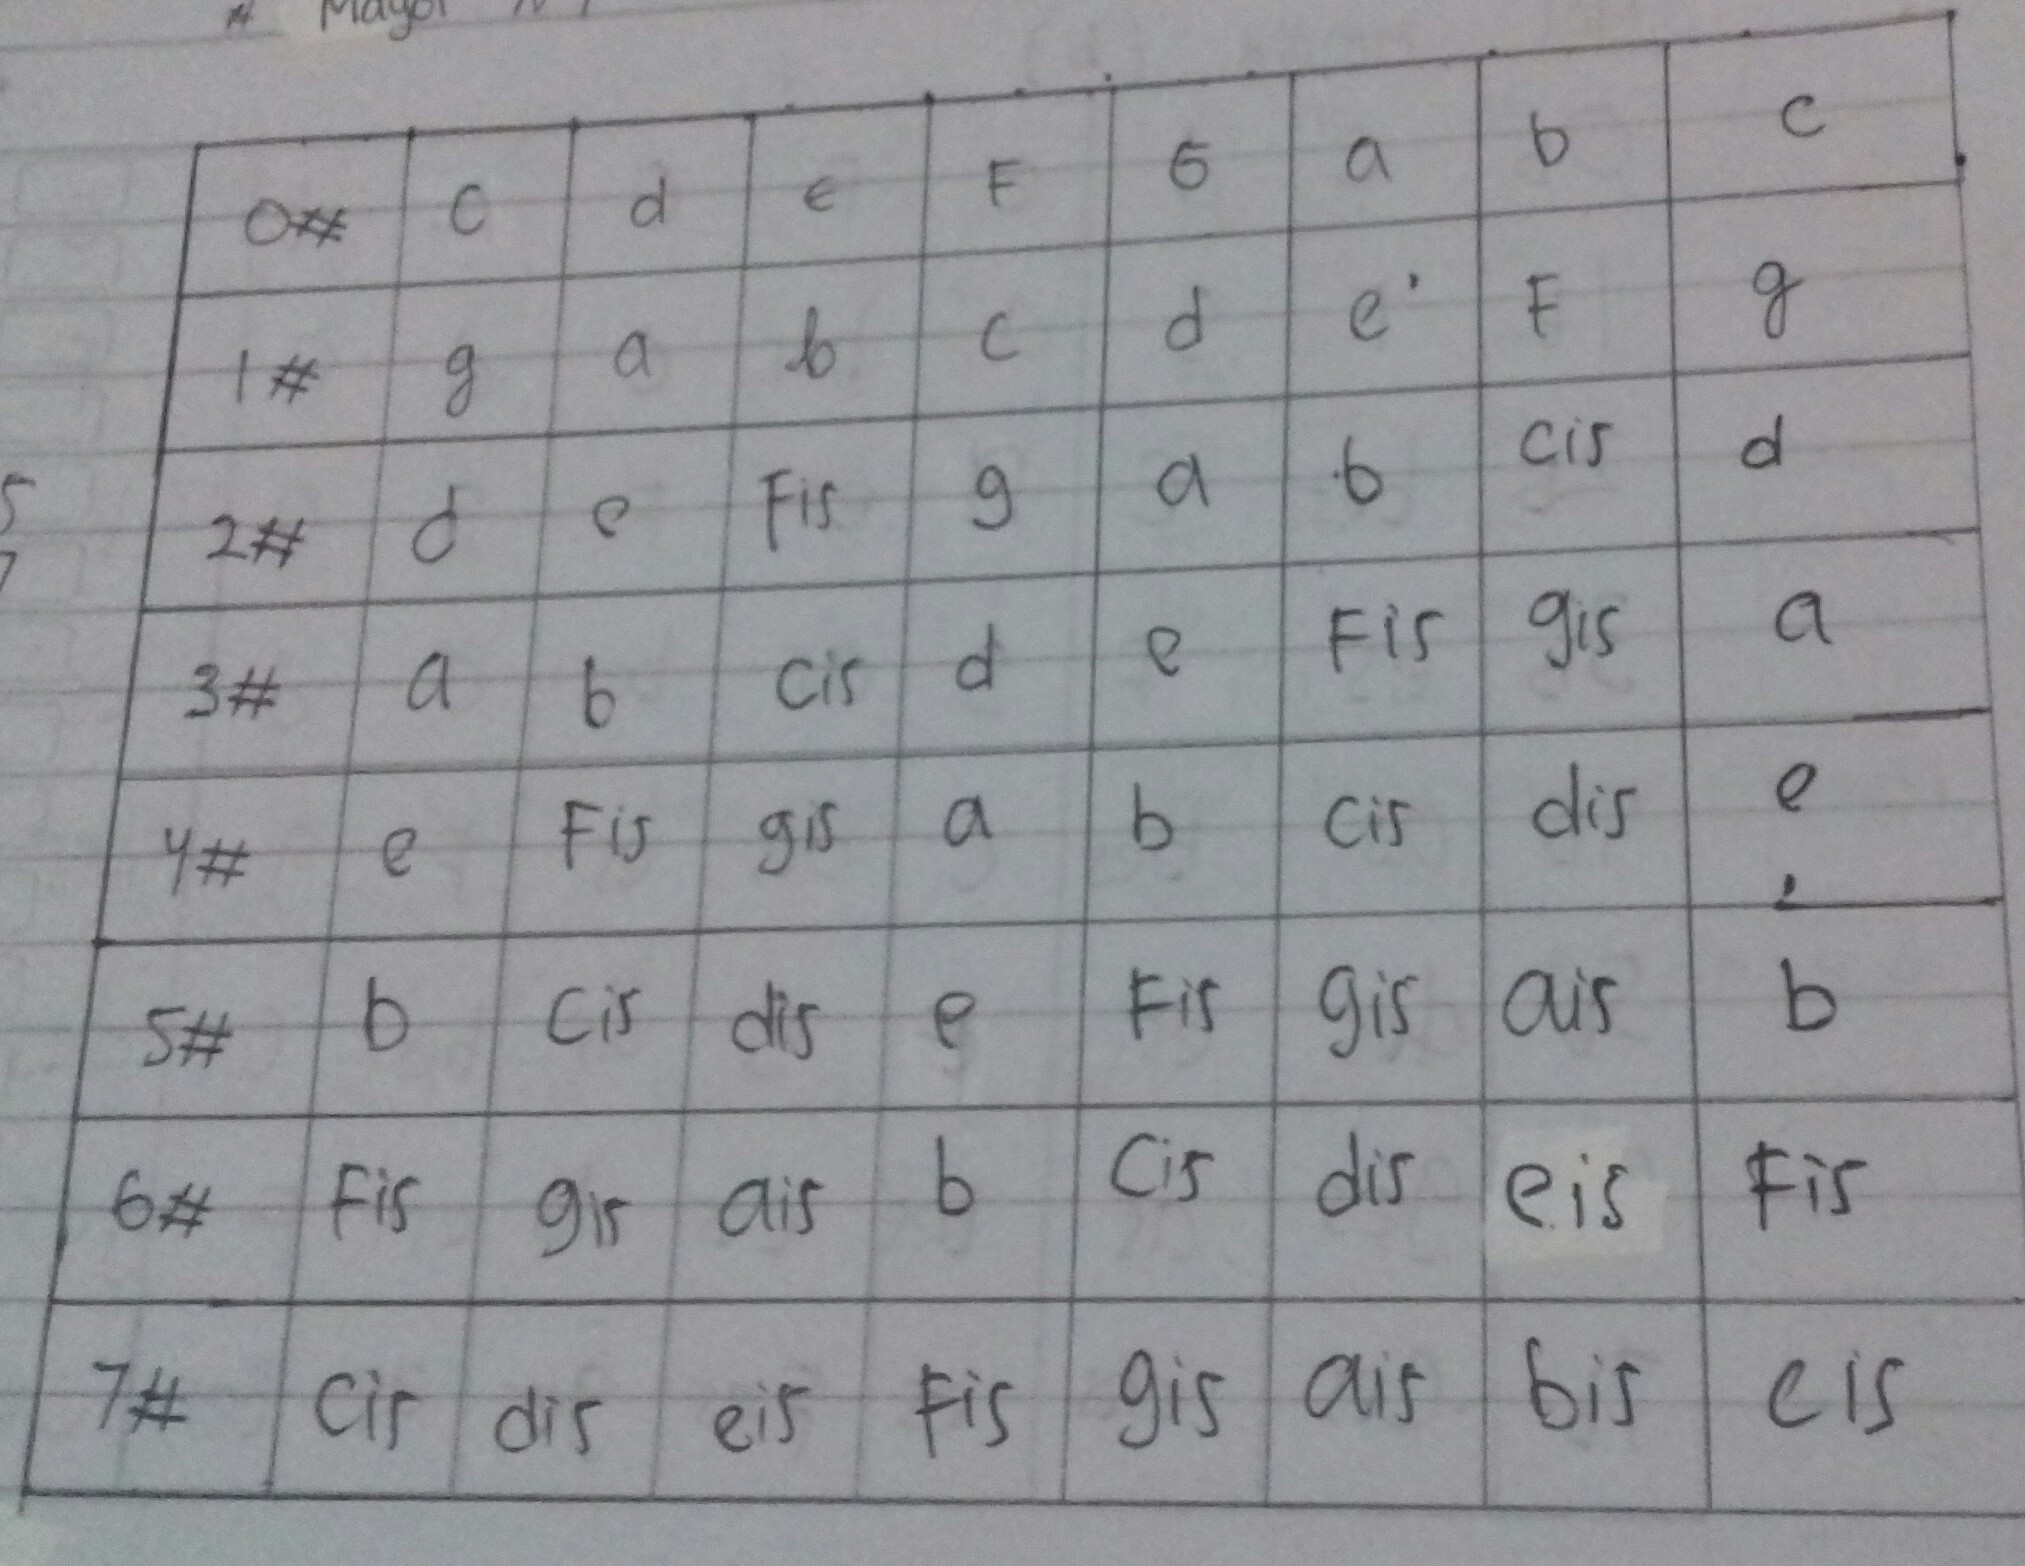 Mayor
0# C d e F G a b c
1# g a b c d e' F g
2# d e Fis g a b cis d
3# a b cis d e Fis gis a
4# e Fis gis a b cis dis e
5# b cis dis e Fis gis ais b
6# Fis gis ais b Cis dis eis Fis
7# Cis dis eis Fis gis ais bis cis